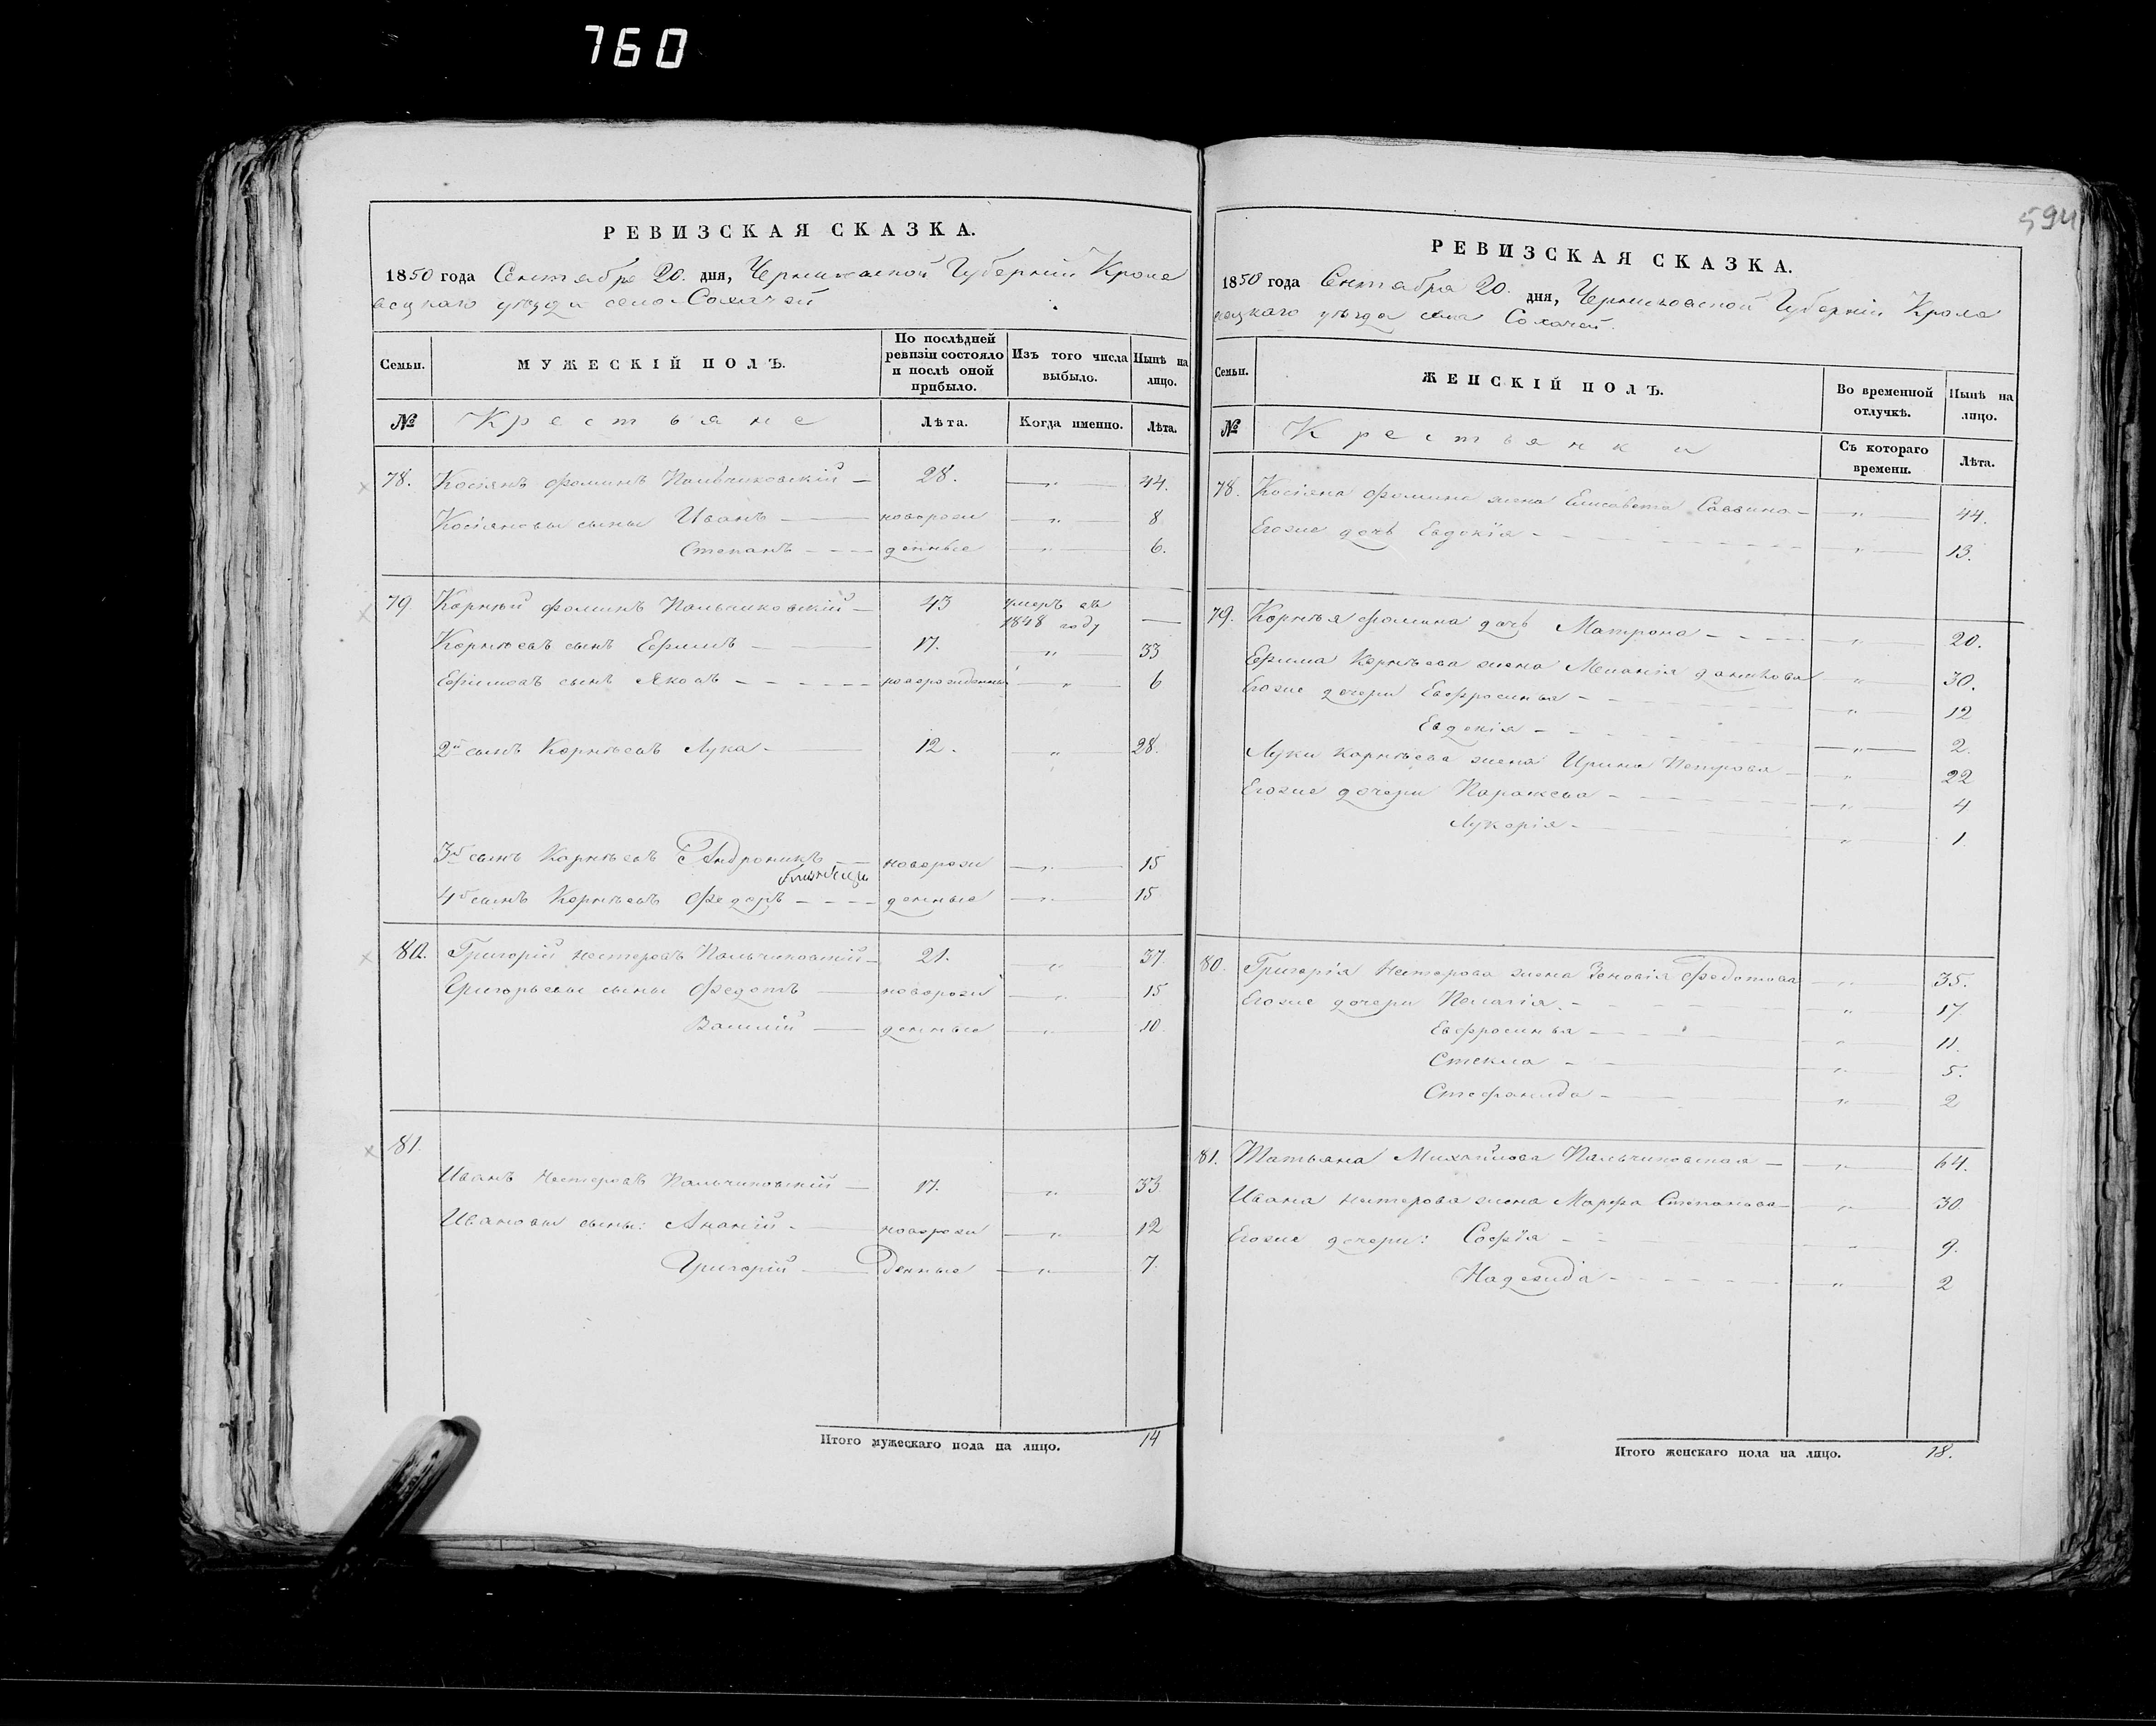 760
594
РЕВИЗСКАЯ СКАЗКА.
1850 года Сентября 20. дня, Черниговской Губерніи Кроле
вецкаго уѣзда село Сохачей
Семьи.
МУЖЕСКІЙ ПОЛЪ.
По послѣдней ревизіи состояло и послѣ оной прибыло.
Изъ того числа выбыло.
Нынѣ на лицо.
№
Крестьяне
Лѣта.
Когда именно.
Лѣта.
78. Косіянъ Фоминъ Пальчиковскій — 28. — „ — 44.
Косіяновы сыны Иванъ — новорож — „ — 8
Степанъ — денные — „ — 6.
79 Корнѣй Фоминъ Пальчиковскій — 43 умеръ въ 1848 году —
Корнѣевъ сынъ Ефимъ — 17. — „ — 33
Ефимовъ сынъ Яковъ — новорожденный — „ — 6
2й сынъ Корнѣевъ Лука — 12. — „ — 28.
3й сынъ Корнѣевъ Андроникъ — новорож — „ — 15
близнецы
4й сынъ Корнѣевъ Федоръ — денные — „ — 15
80. Григорій Нестеровъ Пальчиковскій — 21. — „ — 37.
Григорьевы сыны Федотъ — новорож — „ — 15
Василій — денные — „ — 10.
81.
Иванъ Нестеровъ Пальчиковскій — 17. — „ — 33
Ивановы сыны: Ананій — новорож — „ — 12
Григорій — денные — „ — 7.
Итого мужескаго пола на лицо. 14
РЕВИЗСКАЯ СКАЗКА.
1850 года Сентября 20. дня, Черниговской Губерніи Кроле
вецкаго уѣзда села Сохачей.
Семьи.
ЖЕНСКІЙ ПОЛЪ.
Во временной отлучкѣ.
Нынѣ на лицо.
№
Крестьянки
Съ котораго времени.
Лѣта.
78. Косіяна Фомина жена Елисавета Саввина — „ — 44.
Егоже дочь Евдокія — „ — 13.
79. Корнѣя Фомина дочь Матрона — „ — 20.
Ефима Корнѣева жена Меланія — „ — 30.
Егоже дочери Евфросинья — „ — 12
Евдокія — „ — 2.
Луки Корнѣева жена Ирина Петрова — „ — 22
Егоже дочери Параскева — „ — 4
Лукерія — „ — 1.
80. Григорія Нестерова жена Зеновія Федотова — „ — 35.
Егоже дочери Пелагія — „ — 17.
Евфросинья — „ — 11.
Стекла — „ — 5.
Стефанида — „ — 2
81. Татьяна Михайлова Пальчиковская — „ — 64.
Ивана Нестерова жена Марфа Степанова — „ — 30.
Егоже дочери: Софія — „ — 9.
Надежда — „ — 2
Итого женскаго пола на лицо. 18.